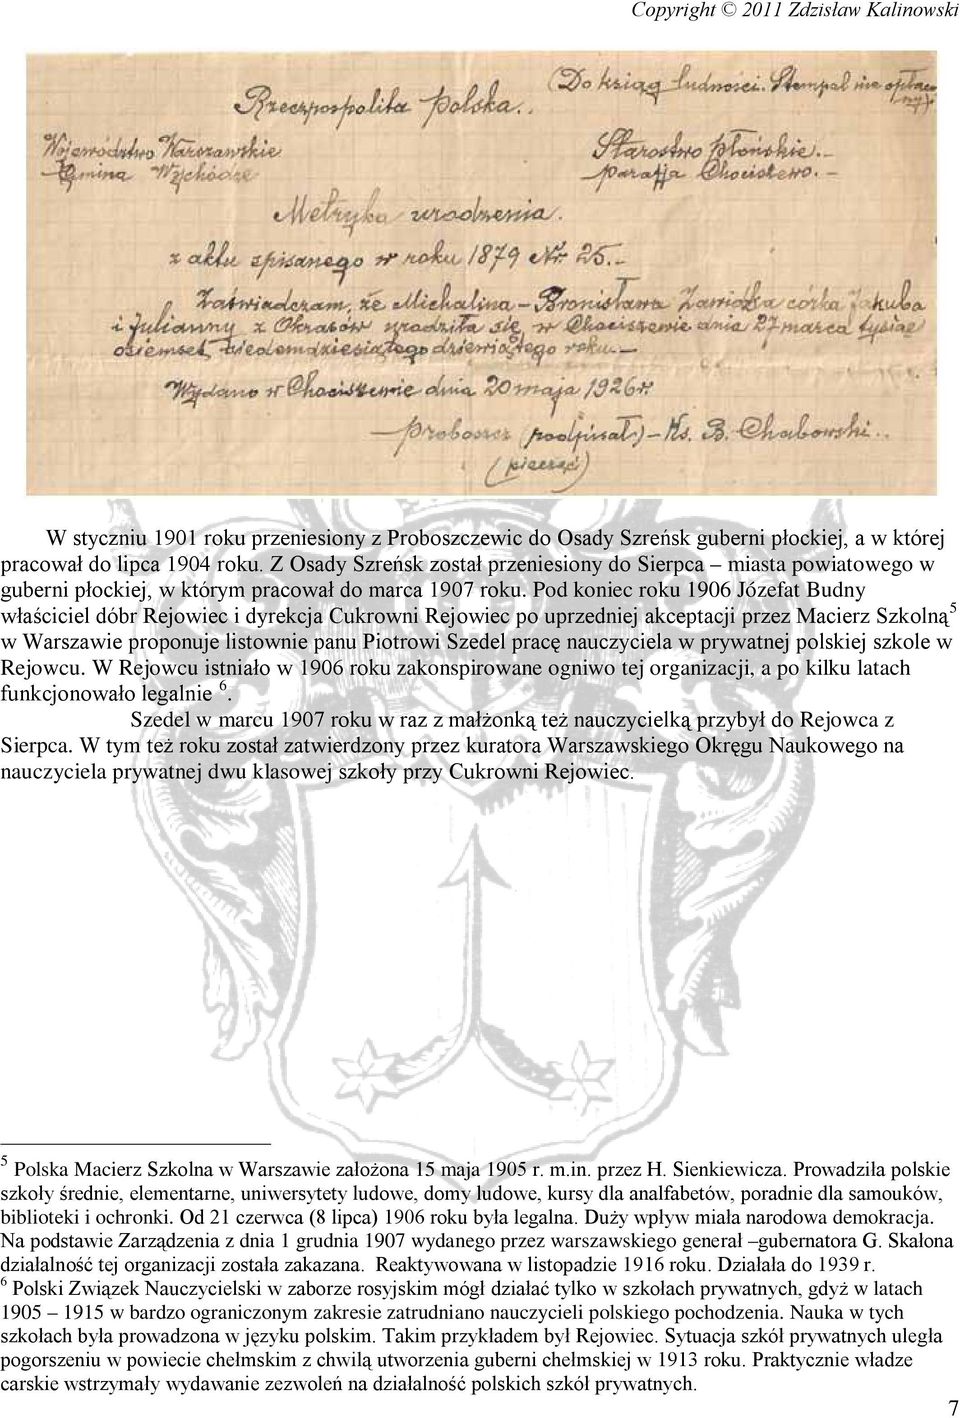 Copyright © 2011 Zdzisław Kalinowski
(Do ksiąg ludności. Stempel nie opłacony).
Rzeczpospolita Polska..
Województwo Warszawskie
Starostwo Płońskie.-
Gmina Wychódźc
parafja Chociszewo.-
Metryka urodzenia.
z aktu spisanego w roku 1879 Nr. 25.-
Zaświadczam, że Michalina-Bronisława Zawiózka córka Jakuba
i Julianny z Okrasów urodziła się w Chociszewie dnia 27 marca tysiąc
osiemset siedemdziesiątego dziewiątego roku.-
Wydano w Chociszewie dnia 20 maja 1926 r.
Proboszcz (podpisał)-Ks. B. Chabowski..
(pieczęć)
W styczniu 1901 roku przeniesiony z Proboszczewic do Osady Szreńsk guberni płockiej, a w której
pracował do lipca 1904 roku. Z Osady Szreńsk został przeniesiony do Sierpca – miasta powiatowego w
guberni płockiej, w którym pracował do marca 1907 roku. Pod koniec roku 1906 Józefat Budny
właściciel dóbr Rejowiec i dyrekcja Cukrowni Rejowiec po uprzedniej akceptacji przez Macierz Szkolną 5
w Warszawie proponuje listownie panu Piotrowi Szedel pracę nauczyciela w prywatnej polskiej szkole w
Rejowcu. W Rejowcu istniało w 1906 roku zakonspirowane ogniwo tej organizacji, a po kilku latach
funkcjonowało legalnie 6.
Szedel w marcu 1907 roku w raz z małżonką też nauczycielką przybył do Rejowca z
Sierpca. W tym też roku został zatwierdzony przez kuratora Warszawskiego Okręgu Naukowego na
nauczyciela prywatnej dwu klasowej szkoły przy Cukrowni Rejowiec.
5 Polska Macierz Szkolna w Warszawie założona 15 maja 1905 r. m.in. przez H. Sienkiewicza. Prowadziła polskie
szkoły średnie, elementarne, uniwersytety ludowe, domy ludowe, kursy dla analfabetów, poradnie dla samouków,
biblioteki i ochronki. Od 21 czerwca (8 lipca) 1906 roku była legalna. Duży wpływ miała narodowa demokracja.
Na podstawie Zarządzenia z dnia 1 grudnia 1907 wydanego przez warszawskiego generał –gubernatora G. Skałona
działalność tej organizacji została zakazana. Reaktywowana w listopadzie 1916 roku. Działała do 1939 r.
6 Polski Związek Nauczycielski w zaborze rosyjskim mógł działać tylko w szkołach prywatnych, gdyż w latach
1905 – 1915 w bardzo ograniczonym zakresie zatrudniano nauczycieli polskiego pochodzenia. Nauka w tych
szkołach była prowadzona w języku polskim. Takim przykładem był Rejowiec. Sytuacja szkół prywatnych uległa
pogorszeniu w powiecie chełmskim z chwilą utworzenia guberni chełmskiej w 1913 roku. Praktycznie władze
carskie wstrzymały wydawanie zezwoleń na działalność polskich szkół prywatnych.
7